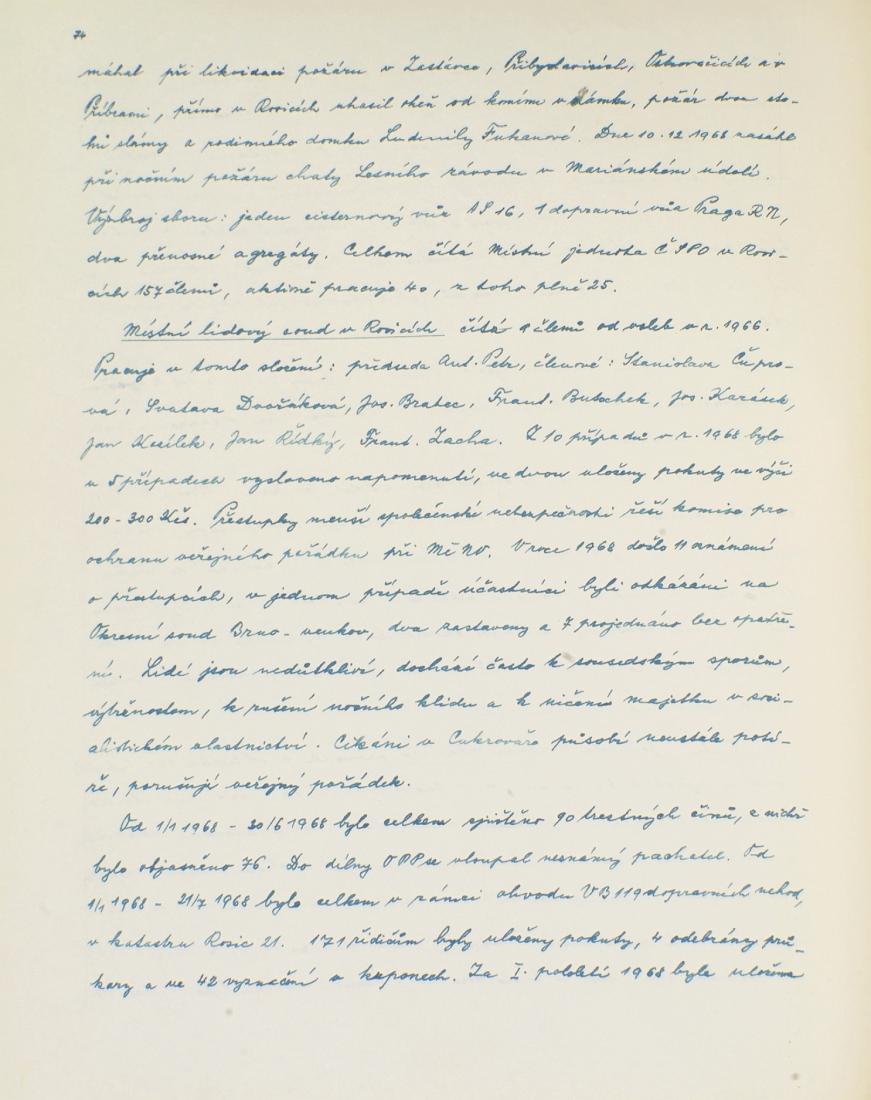 74
máhal při likvidaci požáru v Zastávce, Přibyslavicích, Ostrovačicích a v
Příbrami, přímo v Rosicích uhasil oheň od komína v zámku, požár dvou sto-
hů slámy a rodinného domku Ludmily Fukanové. Dne 10.12 1968 zasáhl
při nočním požáru chaty Lesního závodu v Mariánském údolí.
Výzbroj sboru: jeden cisternový vůz AS 16, 1 dopravní vůz Praga RN,
dva přenosné agregáty. Celkem čítá Místní jednota ČSPO v Rosi-
cích 157 členů, aktivně pracuje 40, z toho plně 25.
Místní lidový soud v Rosicích čítá 9 členů od voleb v r. 1966.
Pracuje v tomto složení: předseda Ant. Petr, členové: Stanislava Čupro-
vá, Svatava Dvořáková, Jos. Bratec, Frant. Butschek, Jos. Karásek,
Jan Kozílek, Jan Řídký, Frant. Zacha. Z 10 případů v r. 1968 bylo
v 5 případech vysloveno napomenutí, ve dvou uloženy pokuty ve výši
200-300 Kčs. Přestupky menší společenské nebezpečnosti řeší komise pro
ochranu veřejného pořádku při MěNV. V roce 1968 došlo 11 oznámení
o přestupcích, v jednom případě účastníci byli odkázáni na
Okresní soud Brno-venkov, dva zastaveny a 7 projednáno bez opatře-
ní. Lidé jsou nedůtkliví, dochází často k sousedským sporům,
výtržnostem, k rušení nočního klidu a k ničení majetku v soci-
alistickém vlastnictví. Cikáni v Cukrovaře působí neustále potí-
že, porušují veřejný pořádek.
Od 1/1 1968 - 30/6 1968 bylo celkem zjištěno 90 trestných činů, z nichž
bylo objasněno 76. Do dílny OPP se vloupal neznámý pachatel. Od
1/1 1968 - 21/7 1968 bylo celkem v rámci obvodu VB 119 dopravních nehod,
v katastru Rosic 21. 171 řidičům byly uloženy pokuty, 4 odebrány prů-
kazy a ve 42 vyznačení v kuponech. Za I. pololetí 1968 byla uložena